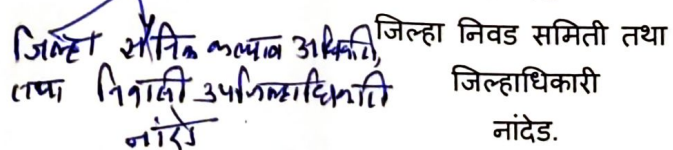 जिल्हा सैनिक कल्याण अधिकारी,
तथा निवासी उपजिल्हाधिकारी
नांदेड
जिल्हा निवड समिती तथा
जिल्हाधिकारी
नांदेड.